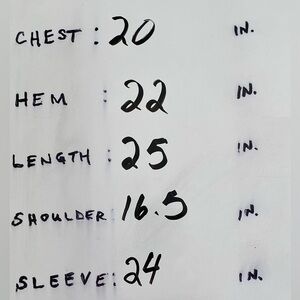 CHEST : 20 IN.
HEM : 22 IN.
LENGTH : 25 IN.
SHOULDER: 16.5 IN.
SLEEVE: 24 IN.